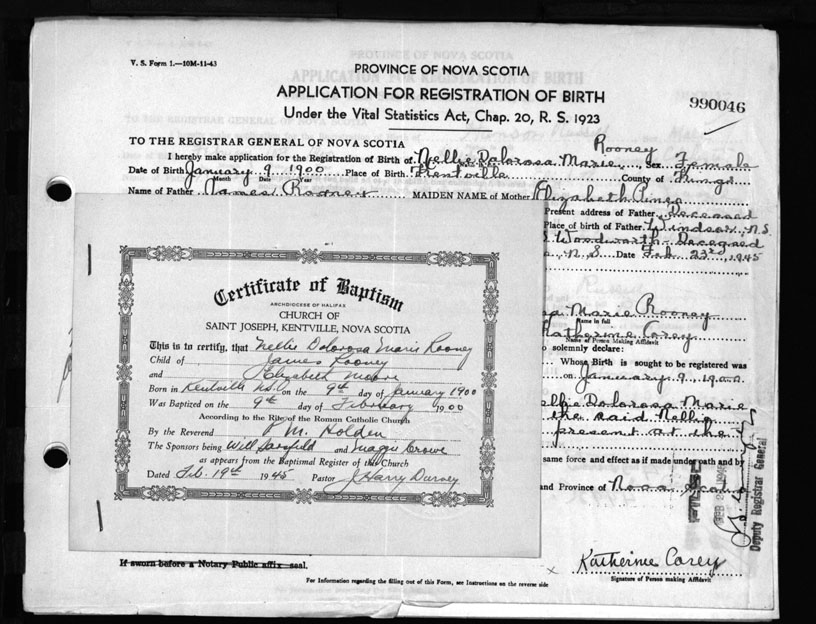 V. S. Form 1.—10M-11-43
PROVINCE OF NOVA SCOTIA
APPLICATION FOR REGISTRATION OF BIRTH
Under the Vital Statistics Act, Chap. 20, R. S. 1923
990046
TO THE REGISTRAR GENERAL OF NOVA SCOTIA
Rooney
I hereby make application for the Registration of Birth of Nellie Dolorosa Marie Sex Female
Date of Birth January 9 1900 Place of Birth Kentville County of Kings
Month Date Year
Name of Father James Rooney MAIDEN NAME of Mother Elizabeth
Present address of Father Deceased
Place of birth of Father Windsor, N.S.
Woodworth Deceased
N.S. Date Feb 23rd, 1945
Marie Rooney
Name in full
Katherine Corey
Name of Person Making Affidavit
solemnly declare:
Whose Birth is sought to be registered was
on January 9, 1900
Nellie Dolorosa Marie
the said Nellie
present at the
same force and effect as if made under oath and by
and Province of Nova Scotia
Deputy Registrar General
Katherine Corey
Signature of Person making Affidavit
If sworn before a Notary Public affix seal.
For Information regarding the filling out of this Form, see Instructions on the reverse side
Certificate of Baptism
ARCHDIOCESE OF HALIFAX
CHURCH OF
SAINT JOSEPH, KENTVILLE, NOVA SCOTIA
This is to certify, that Nellie Dolorosa Marie Rooney
Child of James Rooney
and Elizabeth Moore
Born in Kentville N.S. on the 9th day of January 1900
Was Baptized on the 9th day of February 1900
According to the Rite of the Roman Catholic Church
By the Reverend M. Holden
The Sponsors being Will and Maggie Crowe
as appears from the Baptismal Register of this Church
Dated Feb. 19th 1945 Pastor J. Harry Durney